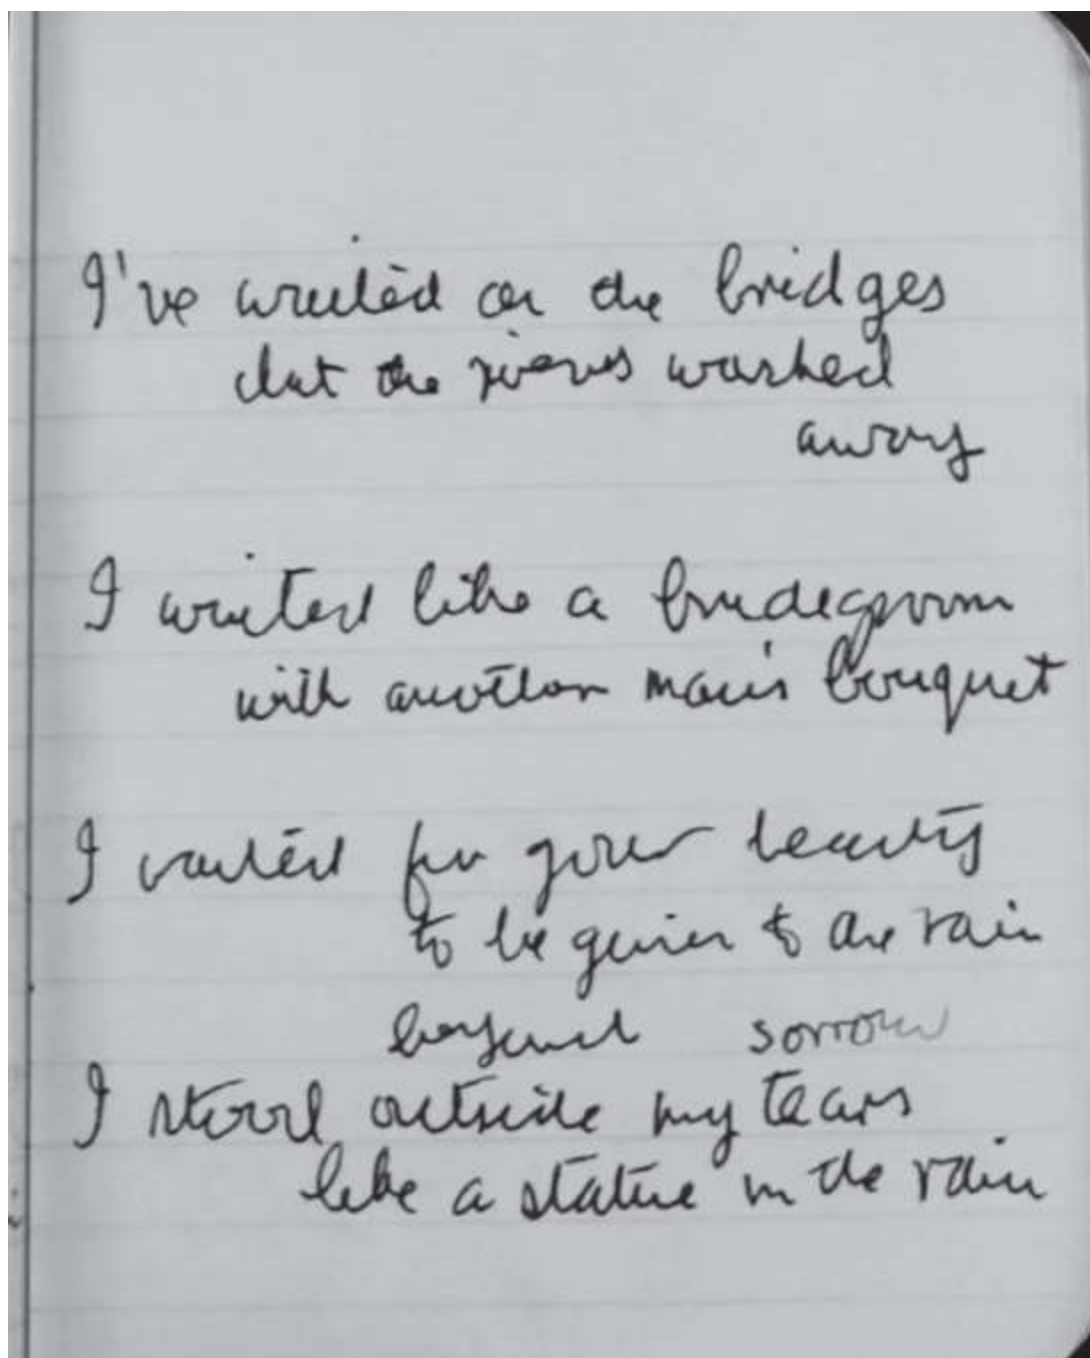 I've waited on the bridges
but the rivers washed
away
I waited like a bridegroom
with another man's bouquet
I waited for your beauty
to be given to the rain
beyond sorrow
I stood outside my tears
like a statue in the rain